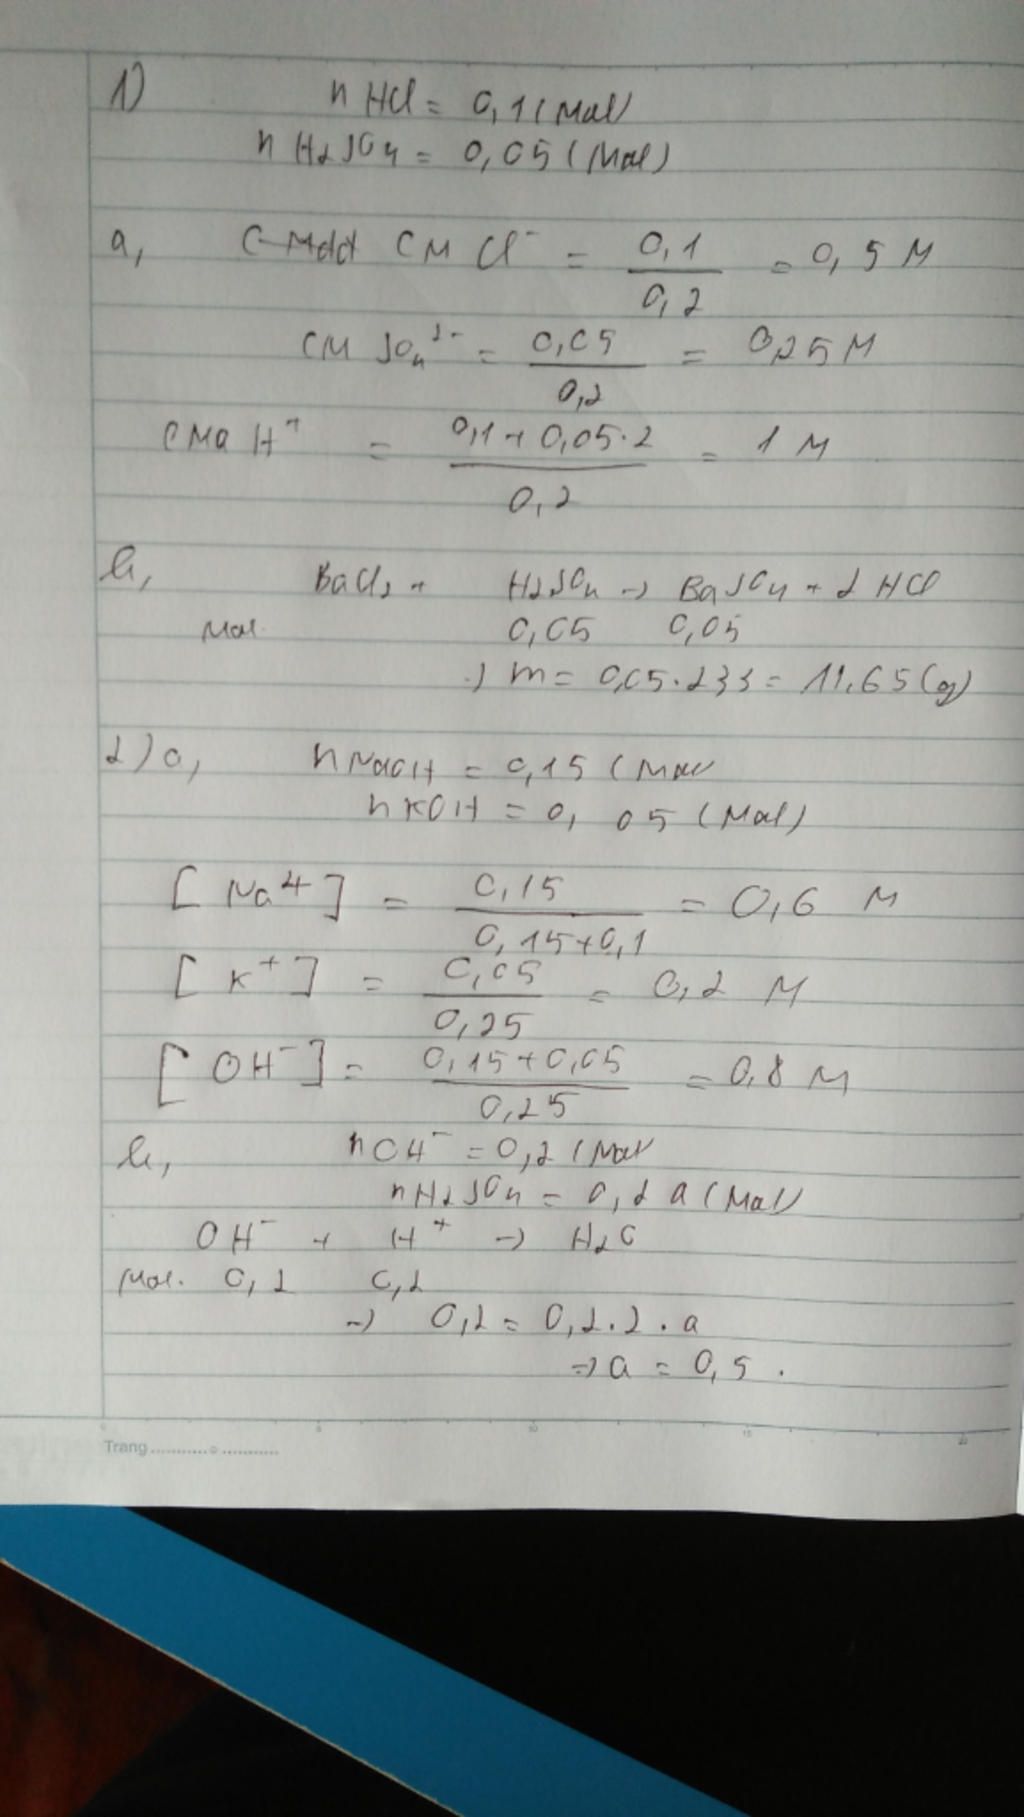 1) nHCl = 0,1 (Mol)
nH2SO4 = 0,05 (Mol)
a, CMdd CM Cl⁻ = 0,1/0,2 = 0,5 M
CM SO4²⁻ = 0,05/0,2 = 0,25 M
H⁺ = 0,1 + 0,05.2/0,2 = 1 M
b, BaCl2 + H2SO4 → BaSO4 + 2 HCl
Mol. 0,05 0,05
→ m = 0,05.233 = 11,65 (g)
2) a, nNaOH = 0,15 (Mol
nKOH = 0,05 (Mol)
[Na⁺] = 0,15/0,15+0,1 = 0,6 M
[K⁺] = 0,05/0,25 = 0,2 M
[OH⁻] = 0,15+0,05/0,25 = 0,8 M
b, nOH⁻ = 0,2 (Mol
nH2SO4 = 0,2 a (Mol)
OH⁻ + H⁺ → H2O
Mol. 0,2 0,2
→ 0,2 = 0,2.2.a
⇒ a = 0,5.
Trang